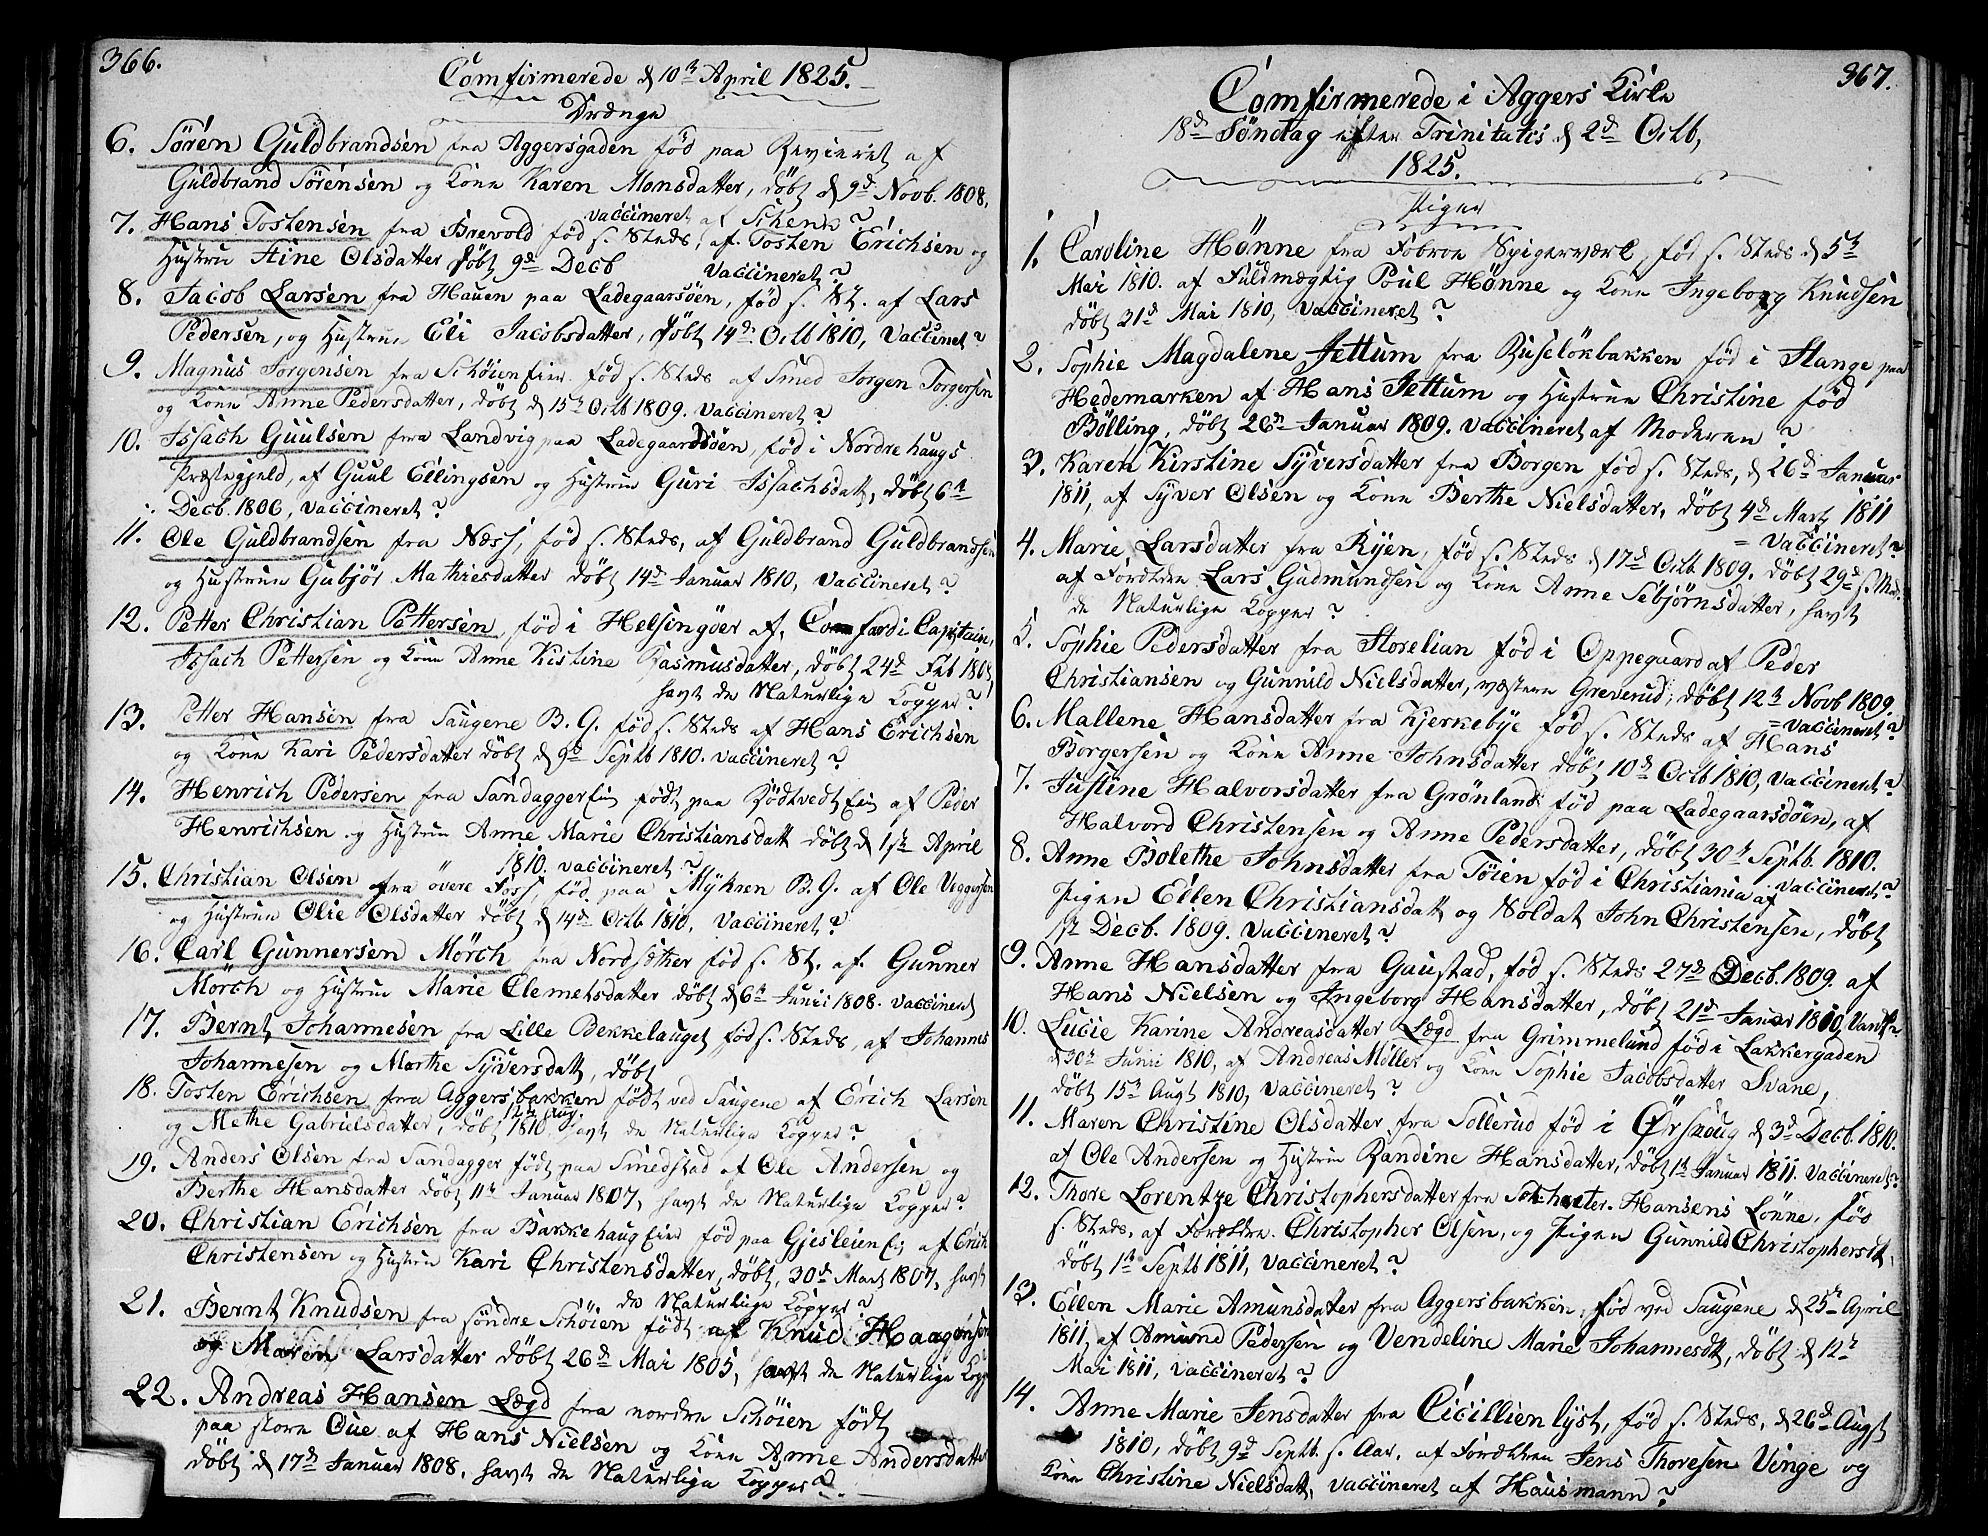 366.
Comfirmerede d 10de April 1825.
Drænge
6. Søren Guldbrandsen fra Aggersgaden fød paa Revieret af
Guldbrand Sørensen og Kone Karen Monsdatter, døbt d 9de Novb. 1808,
vaccineret af Schenn?
7. Hans Tostensen fra Brevold fød s. Steds, af Tosten Erichsen og
Hustrue Stine Olsdatter døbt 9de Decb vaccineret?
8. Jacob Larsen fra Hauen paa Ladegaarsøen, fød s. St. af Lars
Pedersen, og Hustrue Eli Jacobsdatter, døbt 14de Octb 1810, Vaccinet?
9. Magnus Jorgensen fra Schøien Eier fød s. Steds af Smed Jorgen Torgersen
og Kone Anne Pedersdatter, døbt d 15de Octb 1809. vaccineret?
10. Issach Guulsen fra Landvig paa Ladegaardsøen, fød i Nordrehaugs
Præstegjeld, af Guul Ellingsen og Hustrue Guri Issachsdatt, døbt 6te
Decb. 1806, vaccineret?
11. Ole Guldbrandsen fra Næss, fød s. Steds, af Guldbrand Guldbrandsen
og Hustrue Gubjør Mathiesdatter døbt 14de Januar 1810, vaccineret?
12. Petter Christian Pettersen, fød i Helsingøer af, Comfardi Capitain,
Issach Pettersen og Kone Anne Kistine Rasmusdatter, døbt 24de Feb 1808,
havt de Naturlige Kopper?
13. Petter Hansen fra Saugene B. G. fød s. Steds af Hans Erichsen
og Kone Kari Pedersdatter døbt d 9de Septb 1810. vaccineret?
14. Henrich Pedersen fra Sandagger Eie født paa Rødtvedt Eie af Peder
Henrichsen og Hustrue Anne Marie Christiansdatt døbt d 1ste April
1810. vaccineret?
15. Christian Olsen fra øvere Foss, fød paa Myhren B. G. af Ole Ueggersen
og Hustrue Olie Olsdatter døbt d 14de Octb 1810, Vaccineret?
16. Carl Gunnersen Mörch fra Nordsether fød s. St. af Gunner
Mörch og Hustrue Marie Clemetsdatter døbt d 6te Junii 1808. vaccineret
17. Bernt Johannesen fra Lille Bekkelauget fød s. Steds, af Johannes
Johannesen og Marthe Syversdatt, døbt
18. Tosten Erichsen fra Aggersbakken født ved Saugene af Erich Larsen
og Methe Gabrielsdatter, døbt 12te Aug 1810, havt de Naturlige Kopper?
19. Anders Olsen fra Sandagger født paa Smedstad af Ole Andersen og
Berthe Hansdatter døbt 11te Januar 1807, havt de Naturlige Kopper?
20. Christian Erichsen fra Bakkehaug Eier fød paa Gjesleien Eie af Erich
Christensen og Hustrue Kari Christensdatter, døbt, 30de Mart 1807, havt
de Naturlige Kopper?
21. Bernt Knudsen fra søndre Schöien født af Knud Haagensen
og Maren Larsdatter døbt 26de Mai 1805, havt de Naturlige Kopp
22. Andreas Hansen Lægd fra nordre Schöien født
paa store Oue af Hans Nielsen og Kone Anne Andersdatter
døbt d 17de Januar 1808, havt de Naturlige Kopper?
367.
Comfirmerede i Aggers Kirke
18de Søndag efter Trinitatis d 2de Octb,
1825.
Piger
1. Caroline Hønne fra Fobroe Spigerværk, fød s. Steds d 5te
Mai 1810. af Fuldmægtig Poul Hønne og Kone Ingeborg Knudsen
døbt 31de Mai 1810, vaccineret?
2. Sophie Magdalene Jettum fra Ruseløkbakken fød i Stange paa
Hedemarken af Hans Jettum og Hustrue Christine fød
Bølling, døbt 26de Januar 1809. vaccineret af Moderen?
3. Karen Kirstine Syversdatter fra Borgen fød s. Steds, d 26de Januar
1811, af Syver Olsen og Kone Berthe Nielsdatter, døbt 4de Mart 1811
= Vaccineret?
4. Marie Larsdatter fra Ryen, fød s. Steds d 17de Octb 1809. døbt 29de s. Md.
af Foreldre Lars Gudmundsen og Kone Anne Sebjørnsdatter, havt
de Naturlige Kopper?
5. Sophie Pedersdatter fra Storelian fød i Oppegaard af Peder
Christiansen og Gunnild Nielsdatter, væstere Greverud, døbt 12te Novb 1809.
= vaccineret?
6. Mallene Hansdatter fra Kjerkebye fød s. Steds af Hans
Borgersen og Kone Anne Johnsdatter døbt 10de Octb 1810, vaccineret?
7. Justine Halvorsdatter fra Grönland fød paa Ladegaarsdöen, af
Halvord Christensen og Anne Pedersdatter, døbt 30te Septb. 1810.
vaccineret?
8. Anne Bolethe Johnsdatter fra Töien fød i Christiania af
Pigen Ellen Christiansdatt og Soldat John Christensen, døbt
1ste Decb. 1809. vaccineret?
9. Anne Hansdatter fra Gaustad, fød s. Steds 27de Decb. 1809. af
Hans Nielsen og Ingeborg Hansdatter, døbt 21de Januar 1810,
10. Lucie Karine Andreasdatter Lægd fra Grimmelund fød i Lakkergaden
d 30te Junii 1810, af Andreas Møller og Kone Sophie Jacobsdatter Svane,
døbt 15de Augt 1810, vaccineret?
11. Maren Christine Olsdatter fra Sollerud fød i Ørshoug d 3de Decb. 1810.
af Ole Andersen og Hustrue Randine Hansdatter, døbt 1te Januar 1811. vaccineret?
12. Thore Lorentze Christophersdatter fra Hansens Lønne, fød
s. Steds, af Foreldre Christopher Olsen, og Pigen Gunnild Christophersdt,
døbt 1te Septb 1811, vaccineret?
13. Ellen Marie Amunsdatter fra Aggersbakken, fød ved Saugene d 25te April
1811, af Amund Pedersen og Vendeline Marie Johannesdt, døbt d 12te
Mai 1811, vaccineret?
14. Anne Marie Jensdatter fra Cicillienlyst, fød s. Steds, d 26de Augt
1810, døbt 9de Septb. s. Aar, af Foreldre Jens Thoresen Vinge og
Kone Christine Nielsdatt, vaccineret af Hausmann?